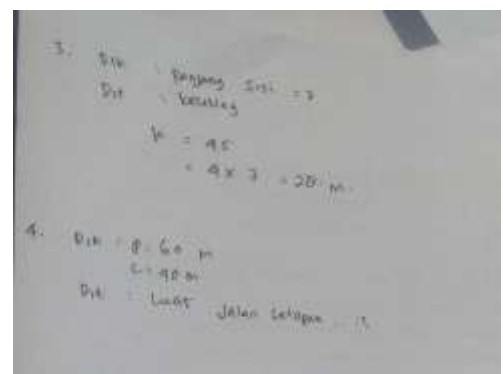 3. Dik : Panjang sisi = 7
Dit : keliling
k = 4s
= 4 x 7 = 28 m.
4. Dik : p. 60 m
L = 40 m
Dit : Luas jalan setapak ... ?